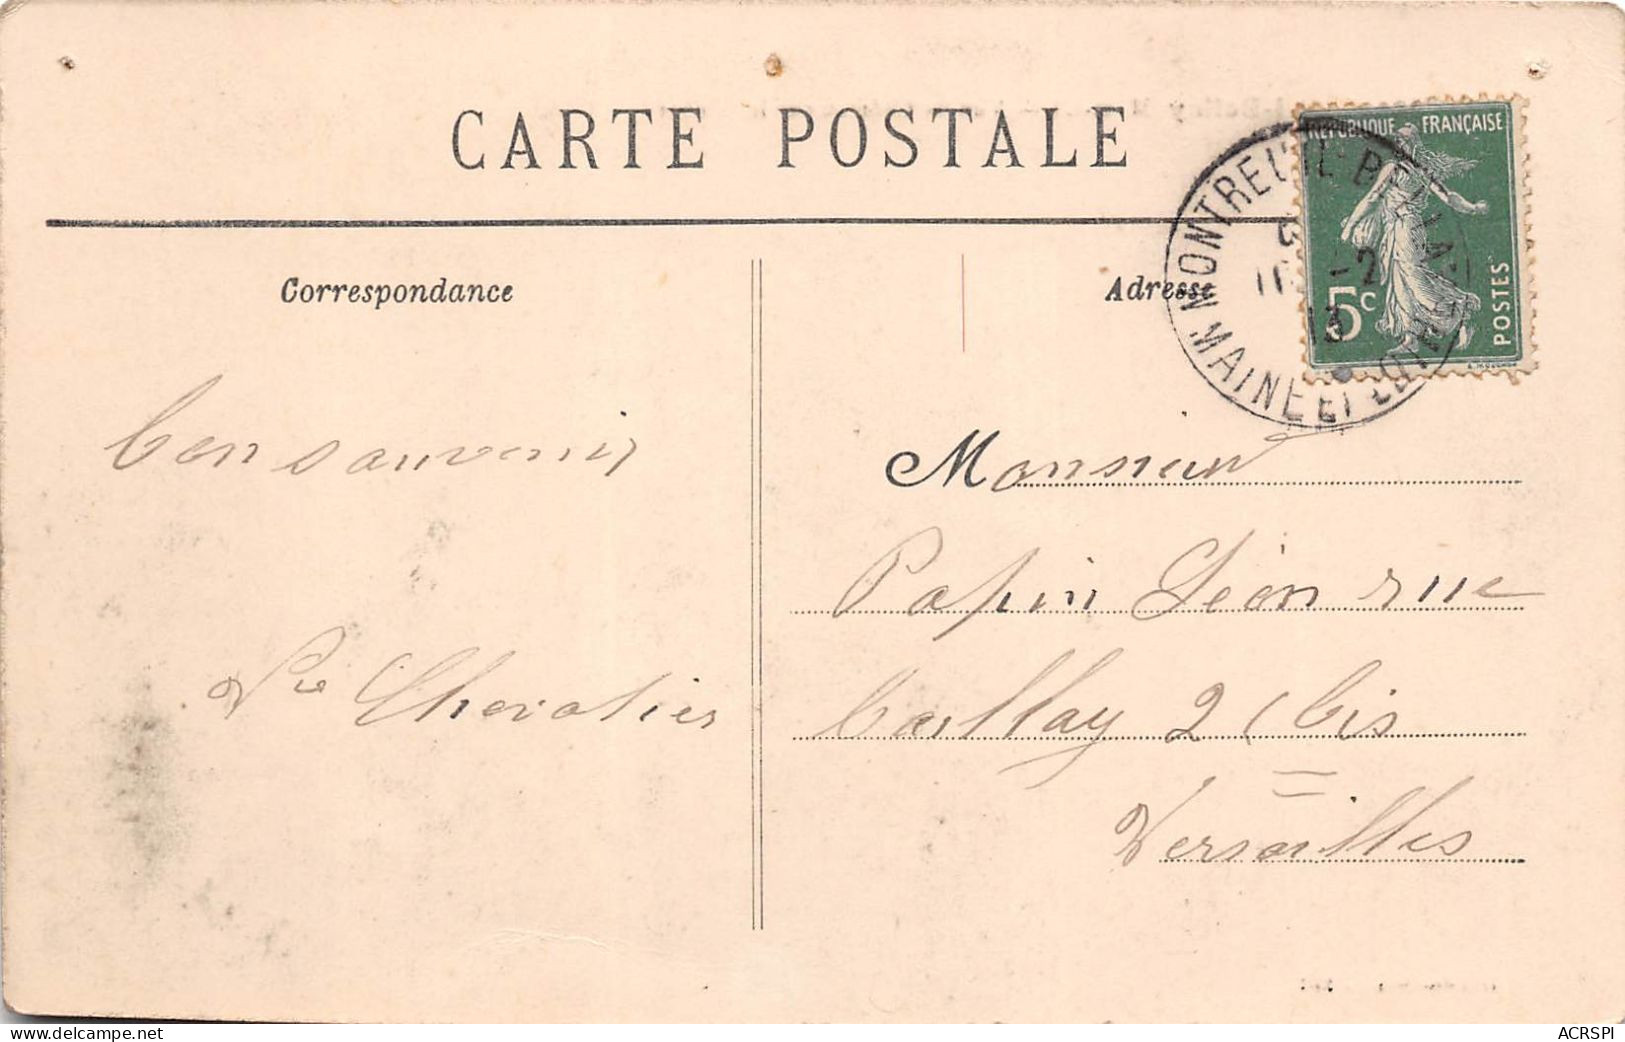 CARTE POSTALE
REPUBLIQUE FRANÇAISE
5c
POSTES
MONTREUIL-BELLAY
MAINE ET LOIRE
-2
13
Correspondance
Adresse
bon souvenir
Chevalier
Monsieur
Papin Léon rue
baillay 2 (bis
Versailles
delcampe.net
ACRSPI